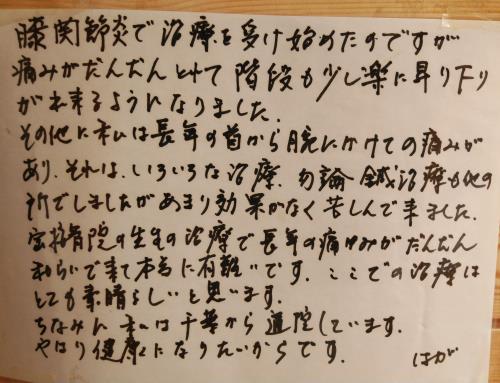 膝関節炎で治療を受け始めたのですが
痛みがだんだんとれて階段も少し楽に昇り下り
が出来るようになりました.
その他に私は長年の首から腕にかけての痛みが
あり、それは、いろいろな治療、勿論鍼治療も他の
所でしましたがあまり効果がなく苦しんで来ました.
接骨院の先生の治療で長年の痛みがだんだん
和らいで来て本当に有難いです. ここでの治療は
とても素晴らしいと思います.
ちなみに私は千葉から通院しています.
やはり健康になりたいからです.
はが